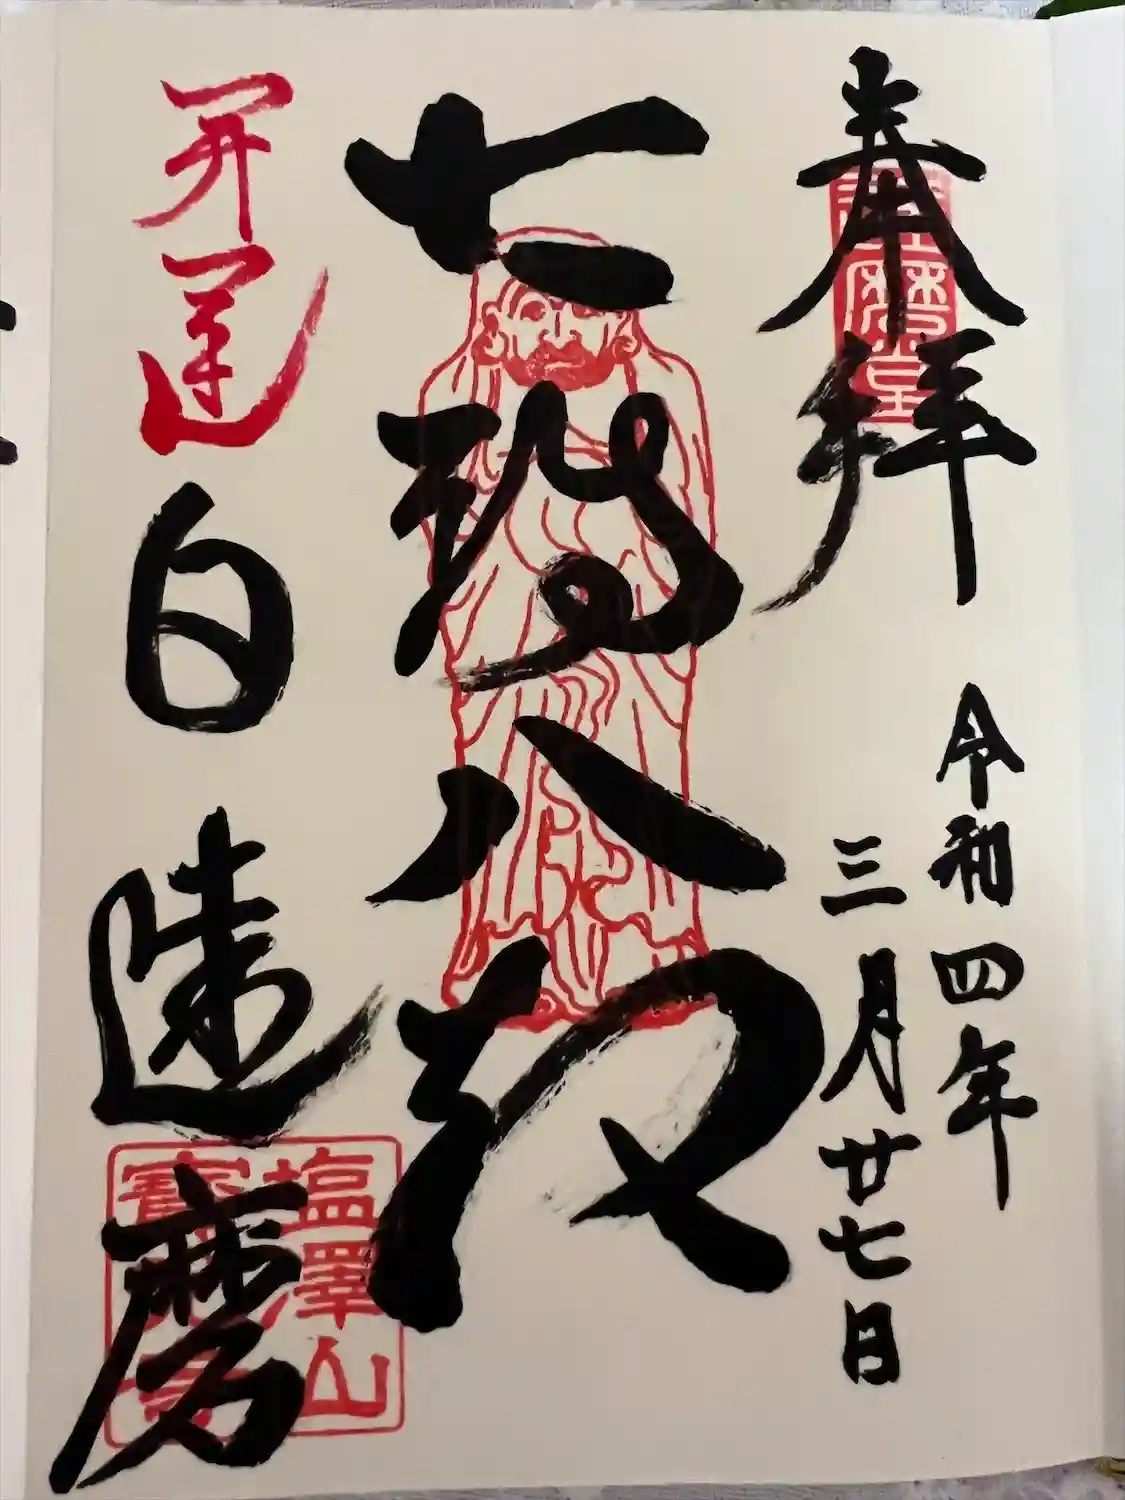 奉拝
令和四年
三月廿七日
七転八起
開運
白達磨
達磨堂
塩澤山